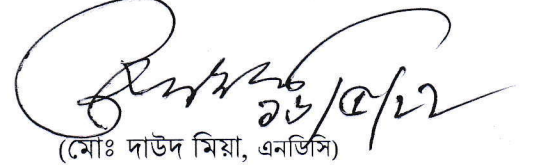 ১৬/৫/২২
(মোঃ দাউদ মিয়া, এনডিসি)